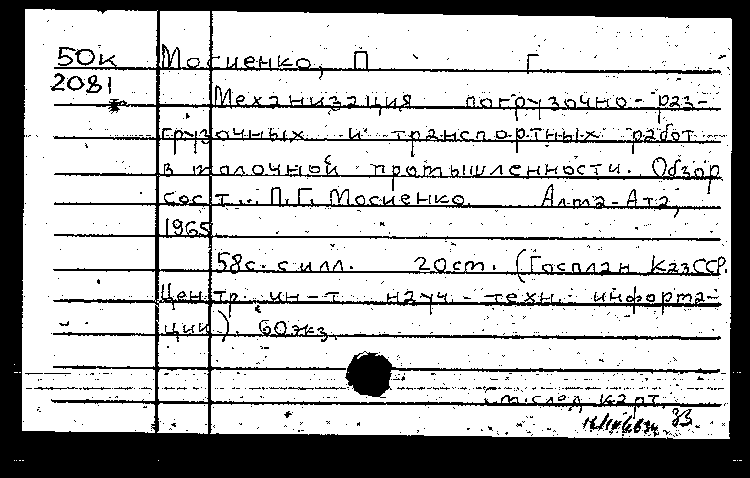 50к Мосиенко, П Г
2081
Механизация погрузочно-раз-
грузочных и транспортных работ
в молочной промышленности. Обзор
сост... П.Г. Мосиенко. Алма-Ата,
1965
58с. с илл. 20см. (Госплан КазССР.
Центр. ин-т науч.-техн. информа-
ции). 60экз.
см.след.карт.
83